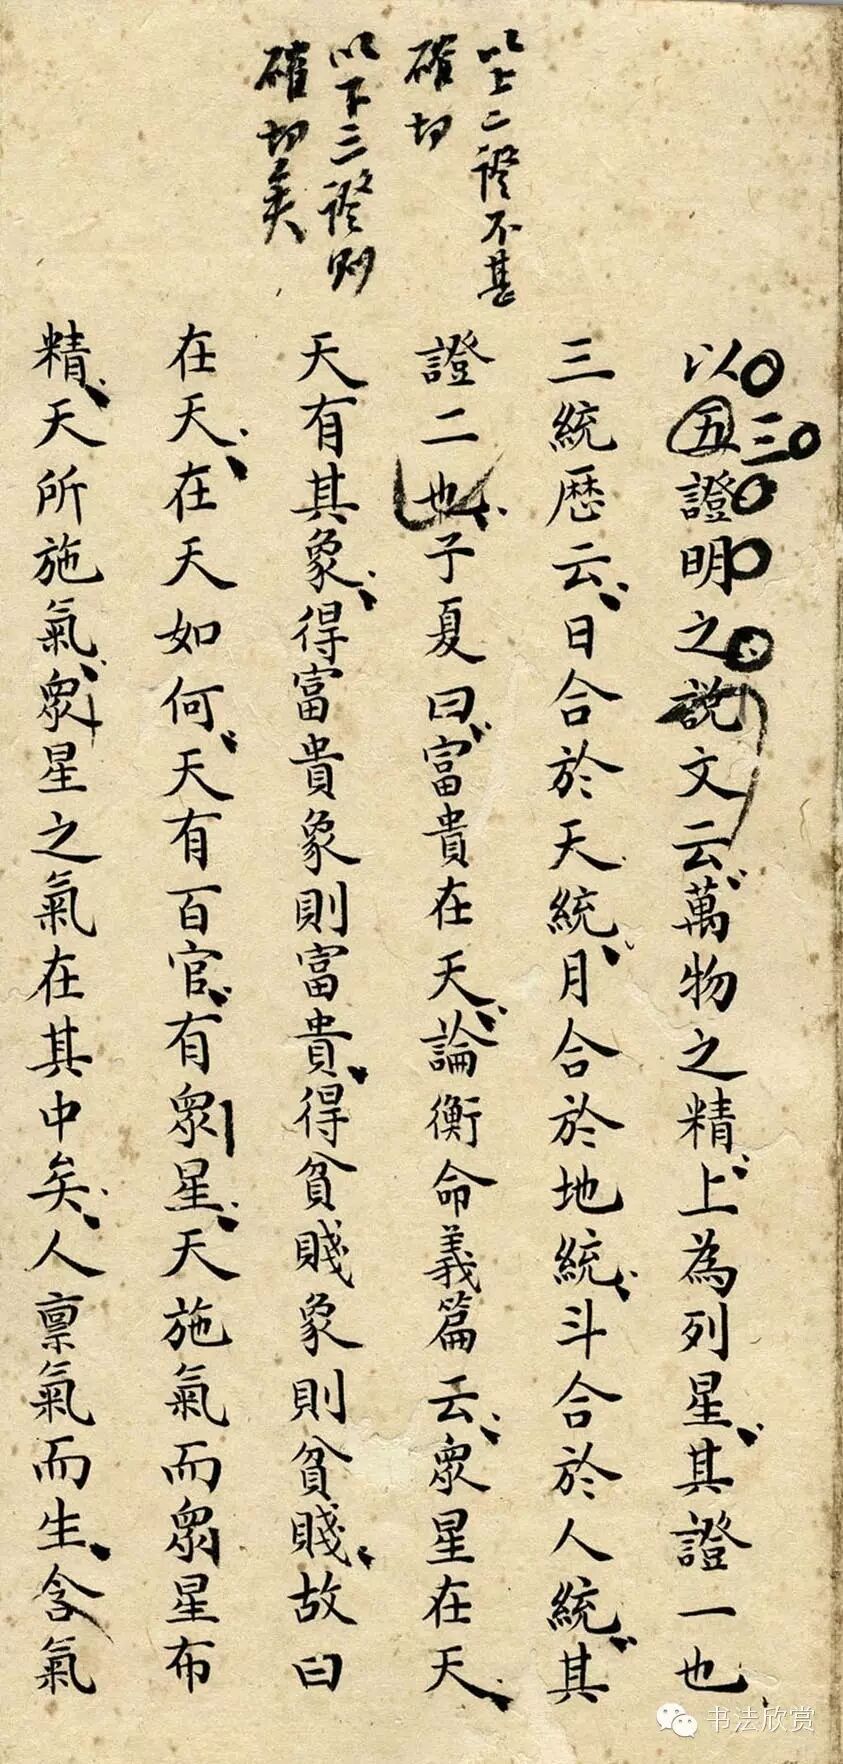 以上二證不甚
確切
以下三證則
確切矣
以五三證明之說文云萬物之精上為列星其證一也
三統歷云日合於天統月合於地統斗合於人統其
證二也子夏曰富貴在天論衡命義篇云眾星在天
天有其象得富貴象則富貴得貧賤象則貧賤故曰
在天在天如何天有百官有眾星天施氣而眾星布
精天所施氣眾星之氣在其中矣人稟氣而生含氣
书法欣赏